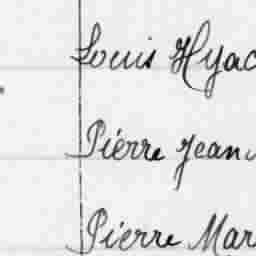 Louis Hyac
Pierre Jean
Pierre Mar